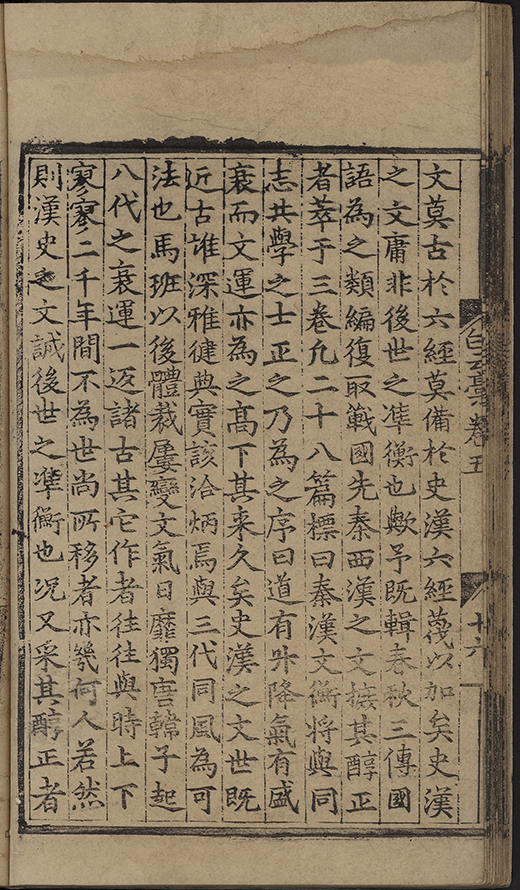 白云稾卷五
十六
文莫古於六經莫備於史漢六經蔑以加矣史漢
之文庸非後世之凖衡也歟予既輯春秋三傳國
語為之類編復取戰國先秦西漢之文摭其醇正
者萃于三卷凢二十八篇標曰秦漢文衡將與同
志共學之士正之乃為之序曰道有升降氣有盛
衰而文運亦為之髙下其来久矣史漢之文世既
近古雄深雅健典實該洽炳焉與三代同風為可
法也馬班以後體裁屢變文氣日靡獨唐韓子起
八代之衰運一返諸古其它作者徃徃與時上下
寥寥二千年間不為世尚所移者亦幾何人若然
則漢史之文誠後世之凖衡也况又采其醇正者